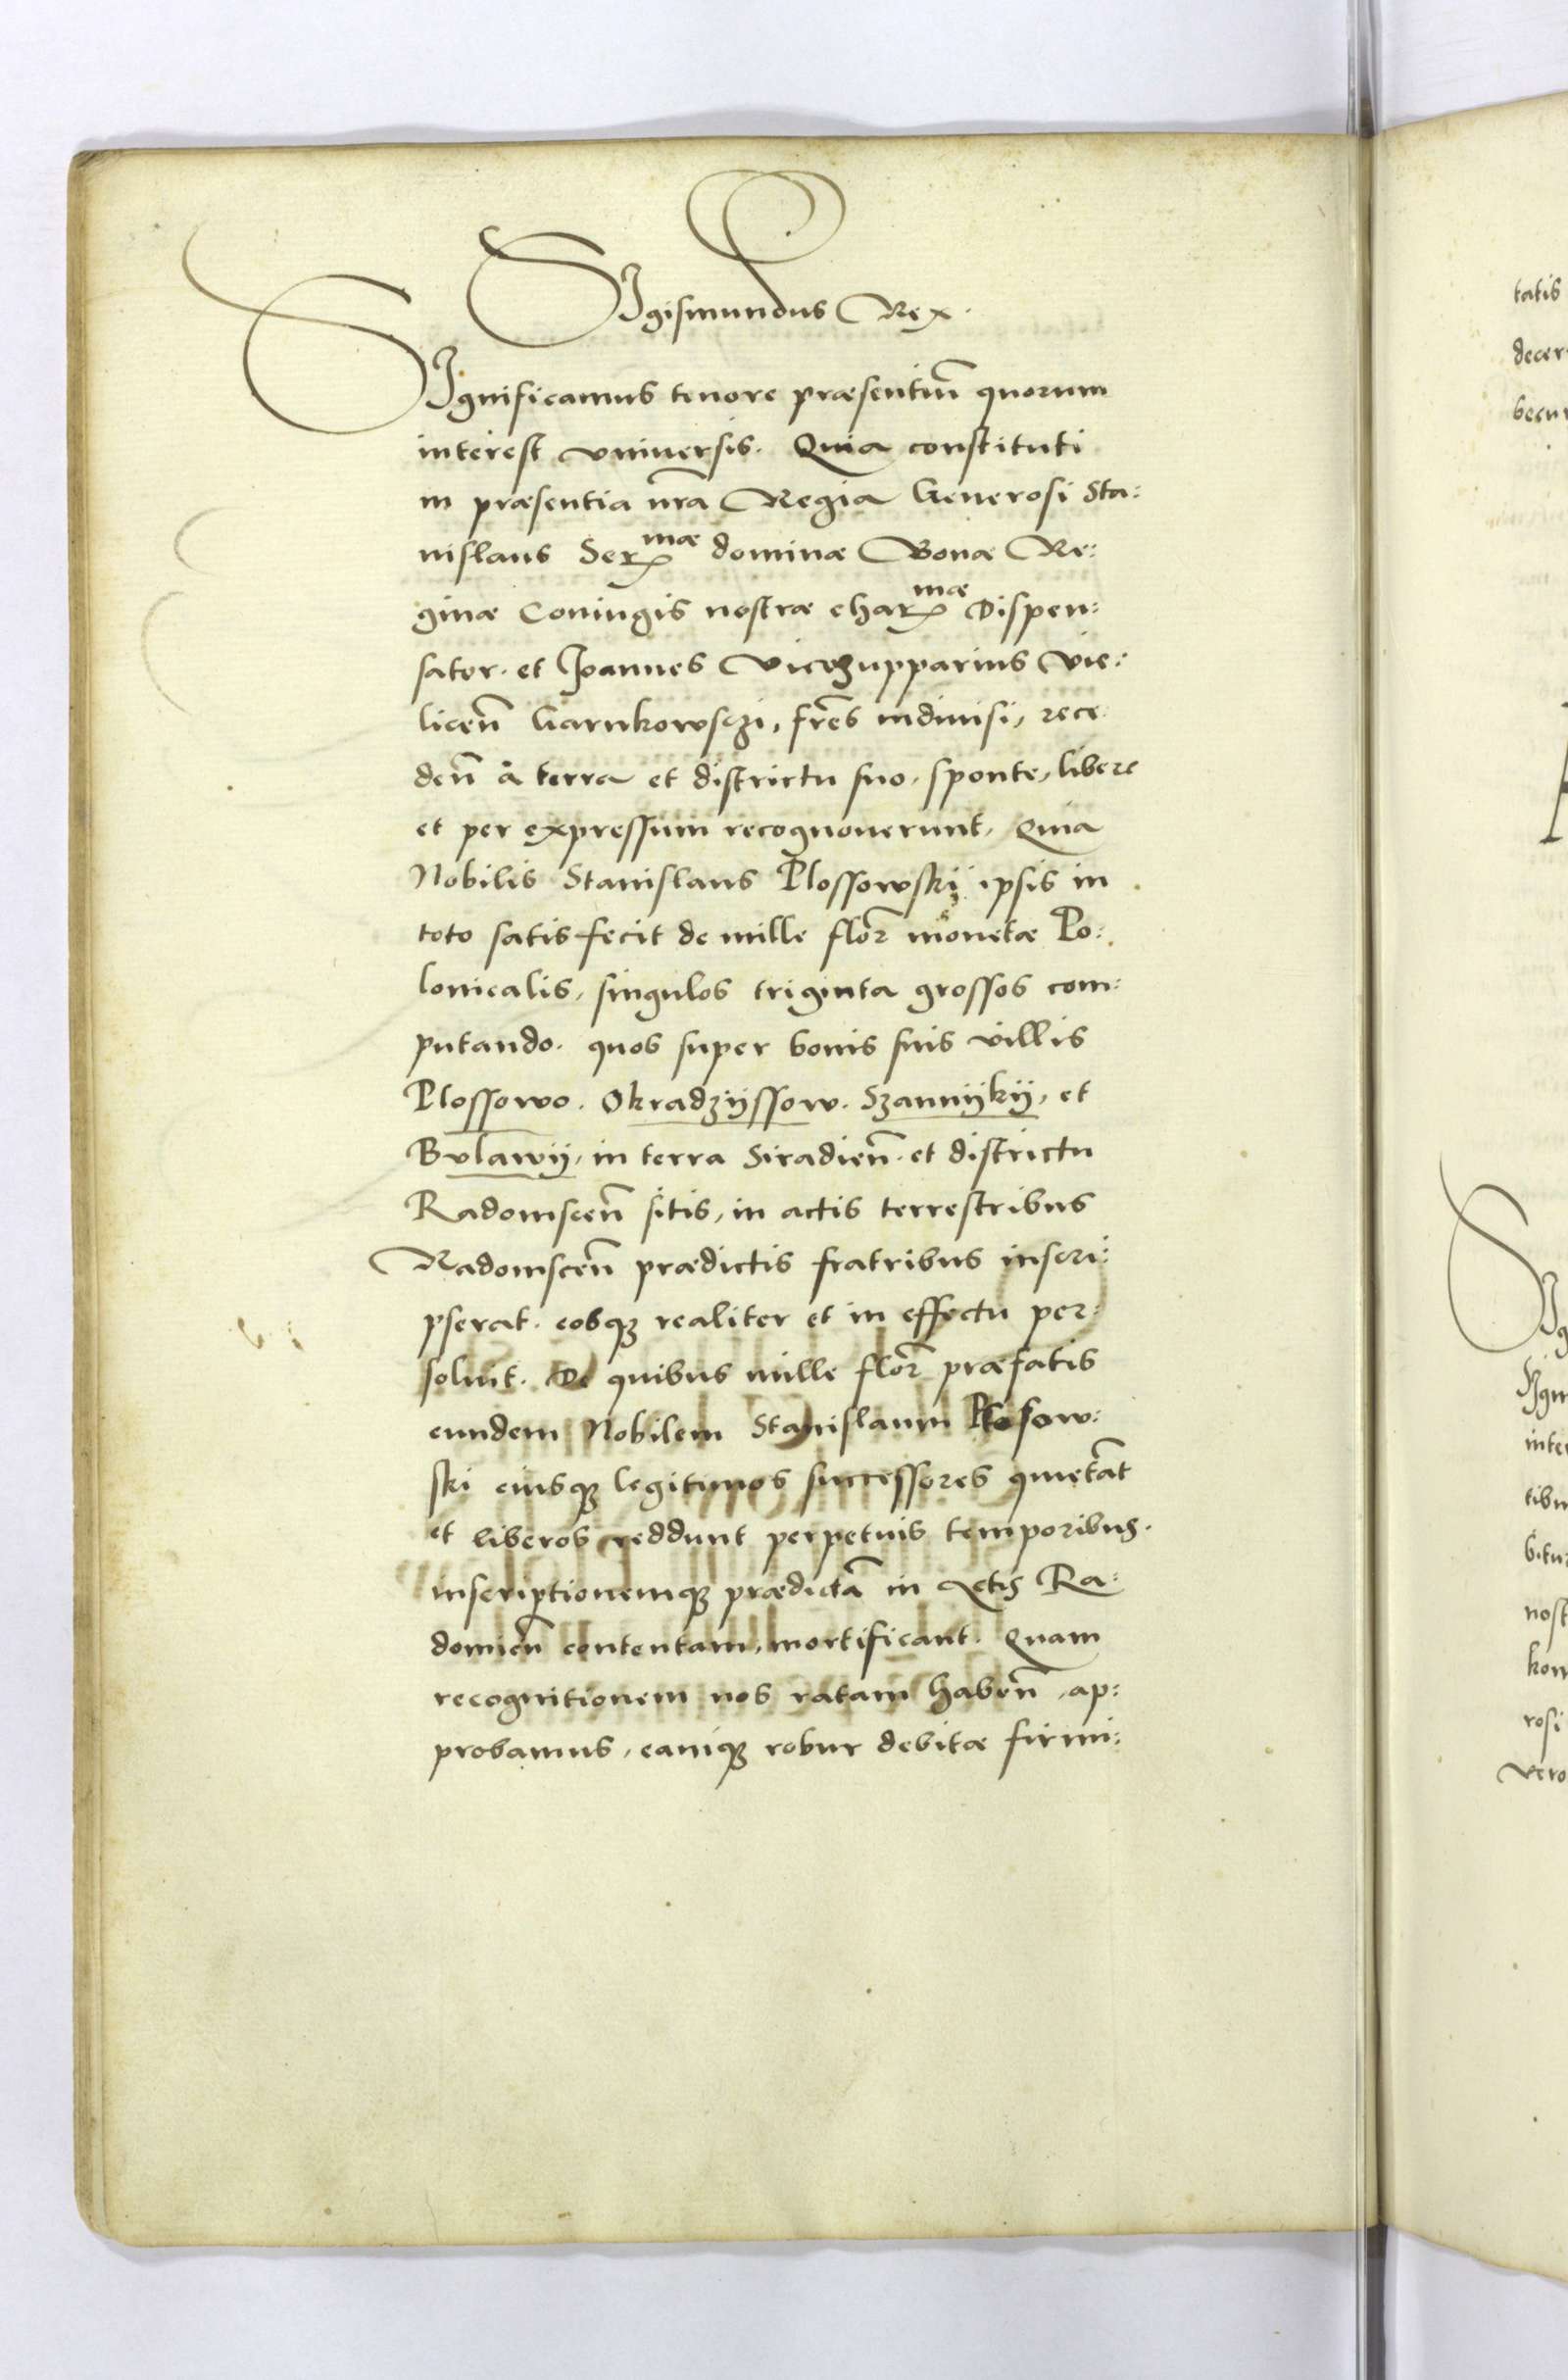 SIgismundus Rex.
SIgnificamus tenore præsentiũ quorum
interest vniuersis. Quia constituti
in præsentia nrã Regia Generosi Sta:
nislaus Ser^mæ dominæ Bonæ Re:
ginæ Coniugis nostræ char^mæ Dispen:
sator. et Joannes Vicezupparius Vie:
liceñ Garnkowsczi, frẽs indiuisi, rece
deñ à terra et districtu suo. sponte, libere
et per expressum recognouerunt, Quia
Nobilis Stanislaus Plossowski ipsis in
toto satisfecit de mille flor̃ monetæ Po:
lonicalis, singulos triginta grossos com:
putando. quos super bonis suis villis
Plossowo. Okradzÿssow. Szannÿkÿ, et
Bvlawÿ, in terra Siradieñ. et districtu
Radomsceñ sitis, in actis terrestribus
Radomsceñ prædictis fratribus inscri:
pserat. eosqꝫ realiter et in effectu per:
soluit. De quibus mille flor̃ præfatis
eundem Nobilem Stanislaum Plosow:
ski eiusqꝫ legitimos successores quietãt
et liberos reddunt perpetuis temporibus.
inscriptionemqꝫ prædictã in Actis Ra:
domieñ contentam, mortificant. Quam
recognitionem nos ratam habeñ, ap:
probamus, eamqꝫ robur debitæ firmi:
tatis
decer
nost
rosi
vero